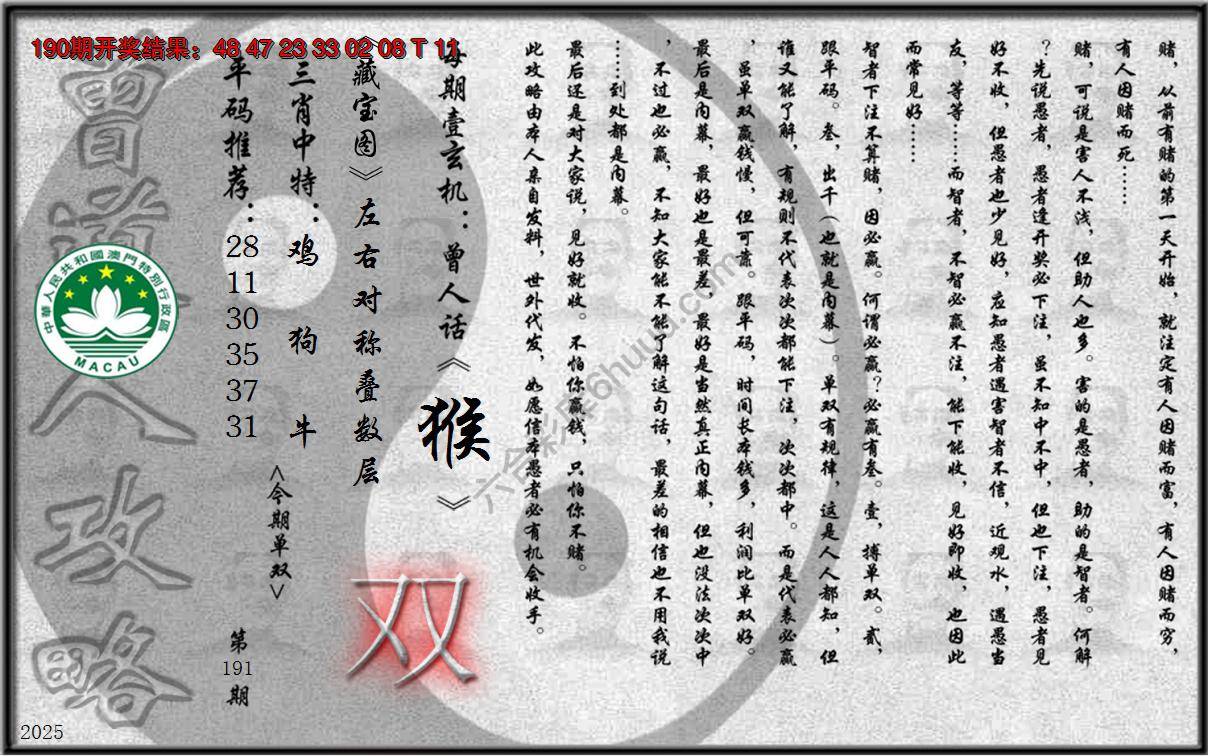 190期开奖结果：48 47 23 33 02 08 T 11
赌，从前有赌的第一天开始，就注定有人因赌而富，有人因赌而穷，
有人因赌而死……
赌，可说是害人不浅，但助人也多。害的是愚者，助的是智者。何解
？先说愚者，愚者逢开奖必下注，虽不知中不中，但也下注，愚者见
好不收，但愚者也少见好，应知愚者遇害智者不信，近观水，遇愚当
友，等等……而智者，不智必赢不注，能下能收，见好即收，也因此
而常见好……
智者下注不算赌，因必赢。何谓必赢？必赢有叁。壹，搏单双。贰，
跟平码。叁，出千（也就是内幕）。单双有规律，这是人人都知，但
谁又能了解，有规则不代表次次都能下注，次次都中。而是代表必赢
，虽单双赢钱慢，但可靠。跟平码，时间长本钱多，利润比单双好。
最后是内幕，最好也是最差，最好是当然真正内幕，但也没法次次中
，不过也必赢，不知大家能不能了解这句话，最差的相信也不用我说
……到处都是内幕。
最后还是对大家说，见好就收。不怕你赢钱，只怕你不赌。
此攻略由本人亲自发料，世外代发，如愿信本愚者必有机会收手。
每期壹玄机：曾人话《猴》
《藏宝图》左右对称叠数层
双
三肖中特：鸡 狗 牛
<今期单双>
平码推荐：
28
11
30
35
37
31
第
191
期
曾道人攻略
中華人民共和國澳門特別行政區
MACAU
2025